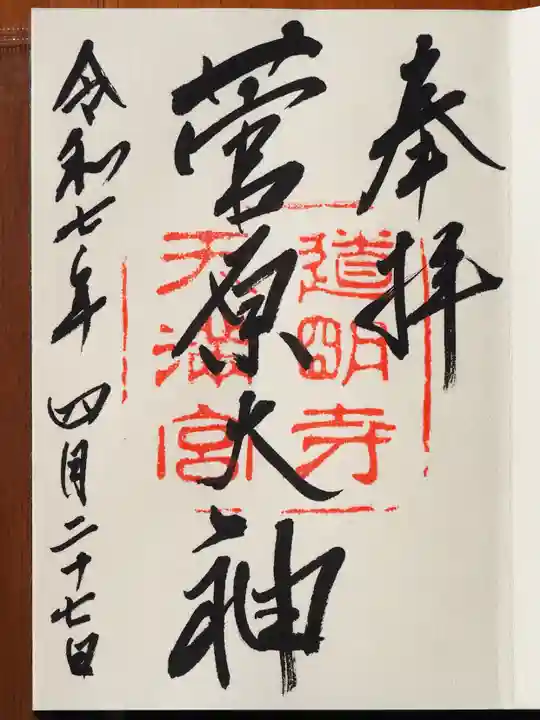 奉拝
菅原大神
道明寺
天満宮
令和七年 四月二十七日